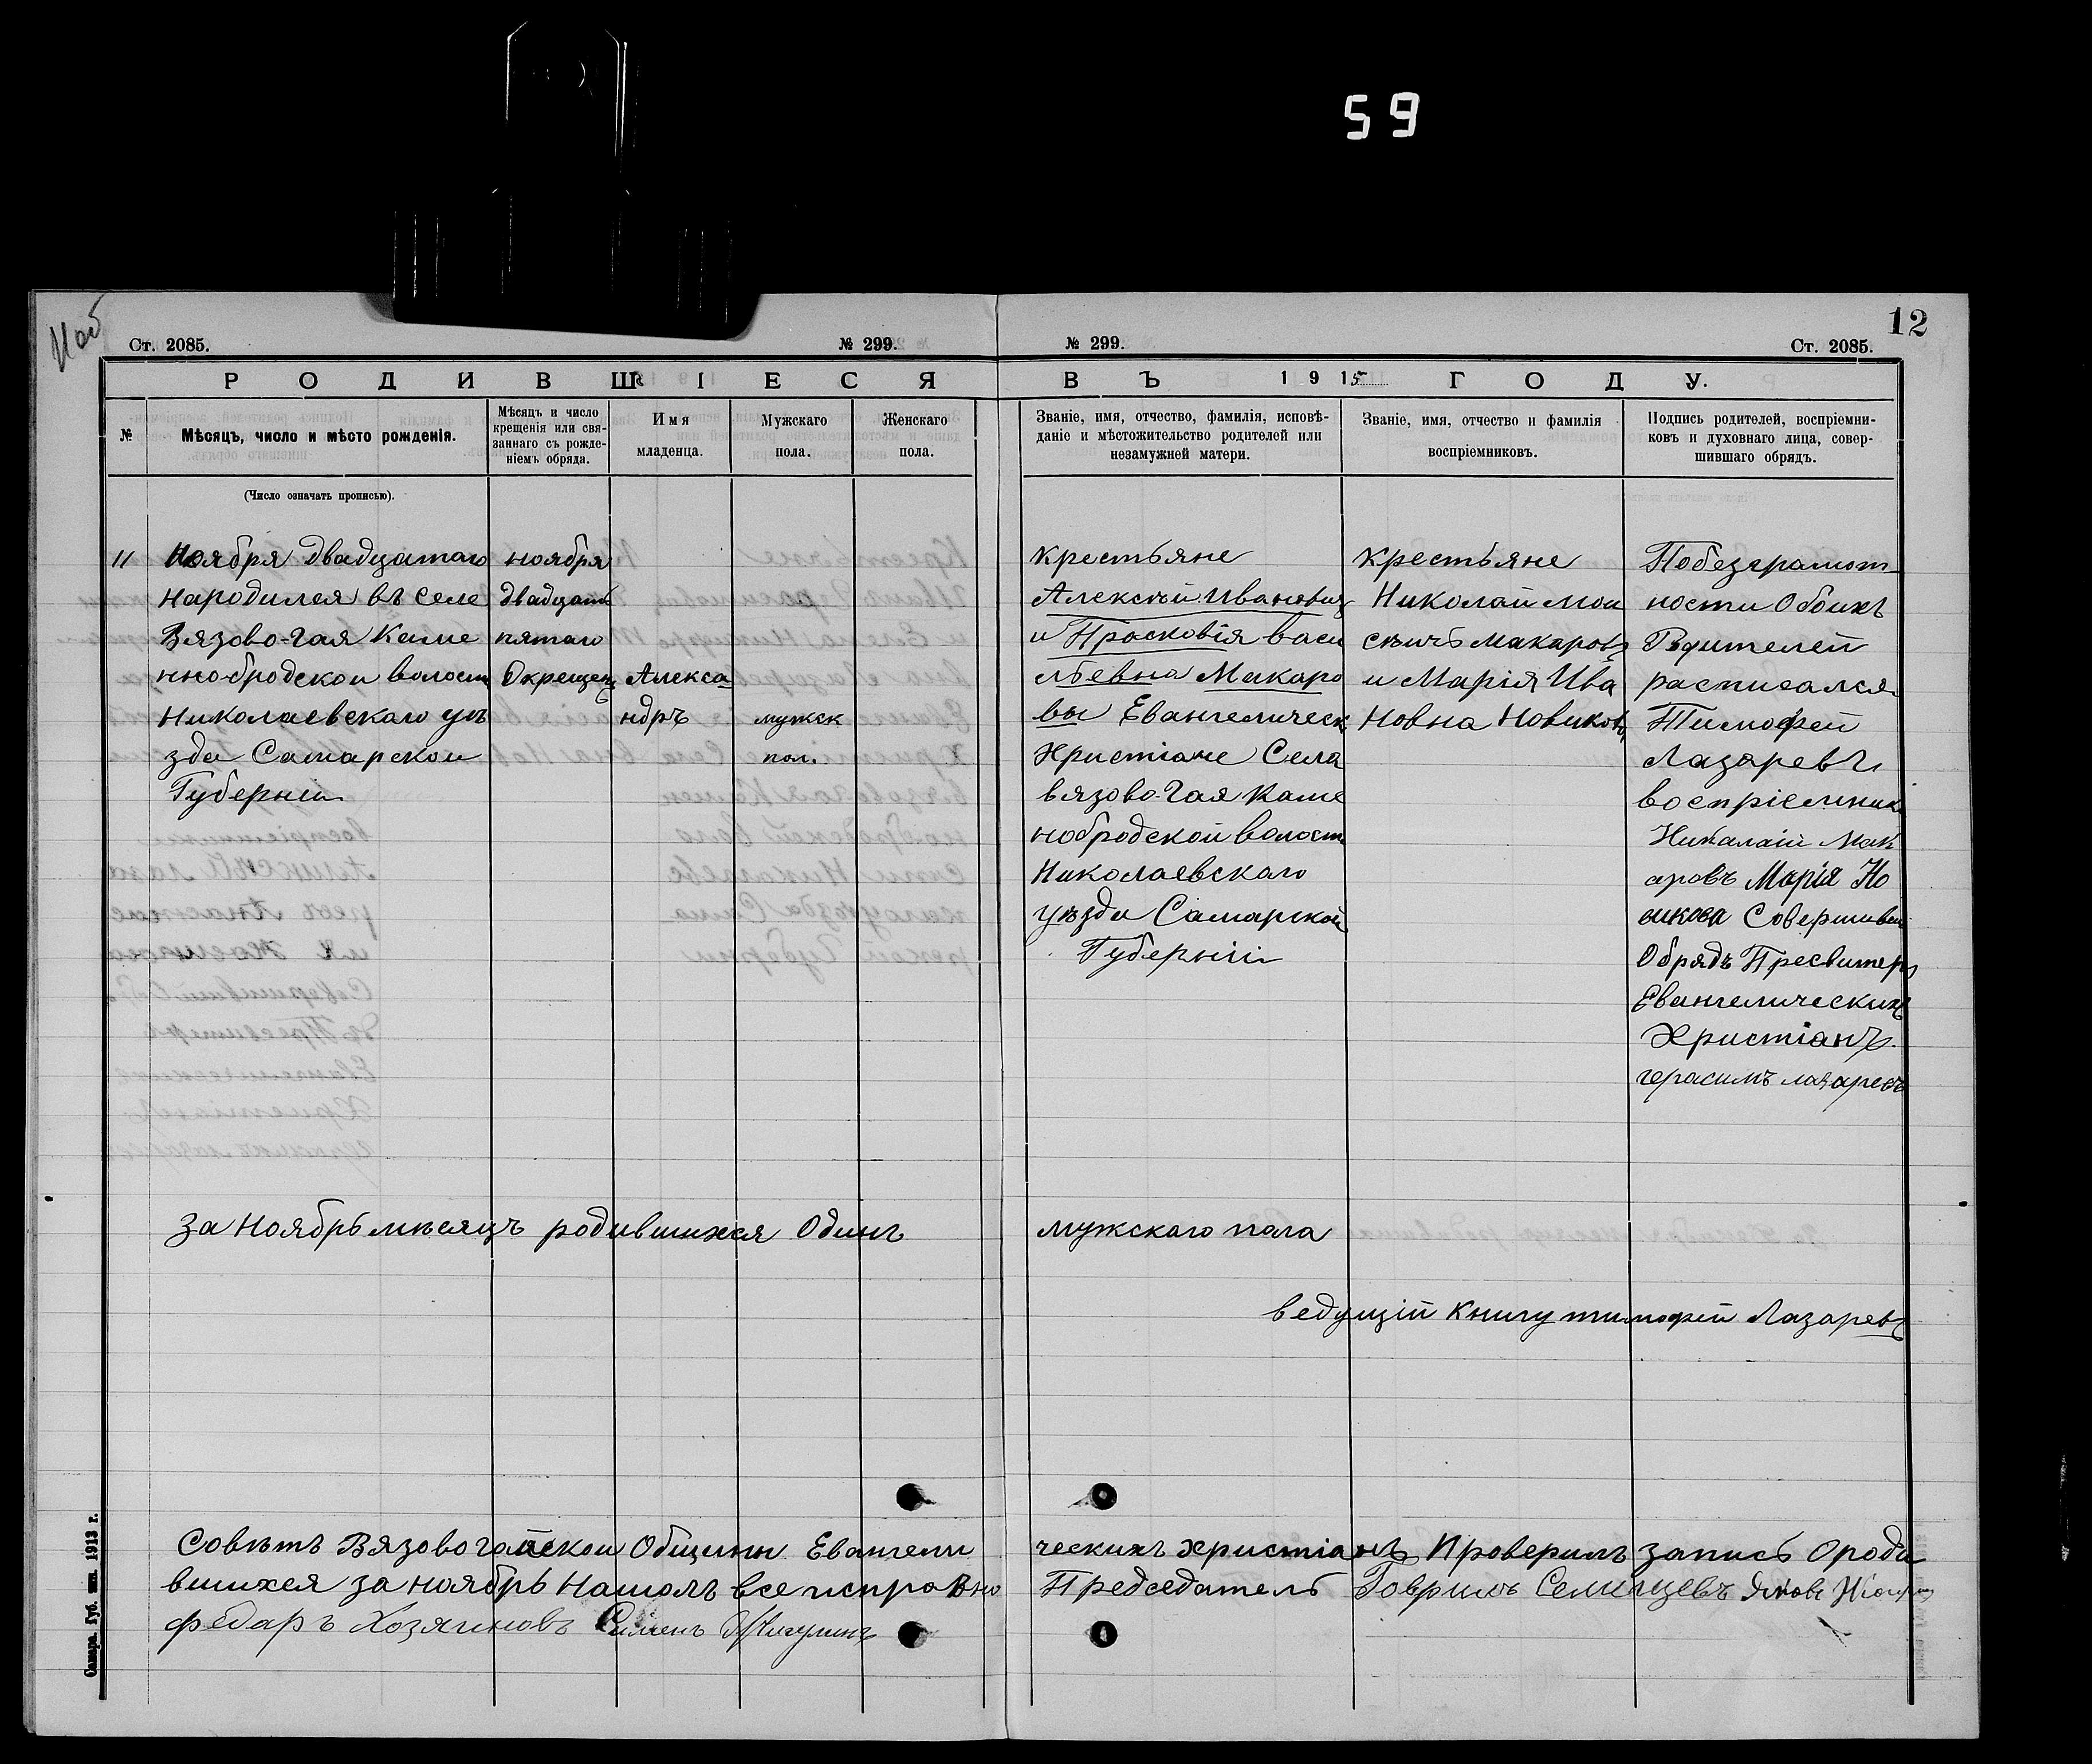 59
12
Ст. 2085.
№ 299.
№ 299.
Ст. 2085.
РОДИВШІЕСЯ
ВЪ 1915 ГОДУ.
№
Мѣсяцъ, число и мѣсто рожденія.
Мѣсяцъ и число
крещенія или свя-
заннаго съ рожде-
ніемъ обряда.
Имя
младенца.
Мужскаго
пола.
Женскаго
пола.
Званіе, имя, отчество, фамилія, исповѣ-
даніе и мѣстожительство родителей или
незамужней матери.
Званіе, имя, отчество и фамилія
воспріемниковъ.
Подпись родителей, воспріемни-
ковъ и духовнаго лица, совер-
шившаго обрядъ.
(Число означать прописью).
11
Ноября двадцатаго
народился въ селе
Вязово-гая Каме
нно-бродской волости
Николаевскаго уѣ
зда Самарской
Губерніи
ноября
двадцать
пятаго
Окрещенъ
Алекса
ндръ
мужск
пол.
крестьяне
Алексѣй Ивановичъ
и Просковія Васи
льевна Макаро
вы Евангелическ
Христіане Села
вязово-Гая Каме
нобродской волости
Николаевскаго
уѣзда Самарской
Губерніи
крестьяне
Николай Мои
сѣичъ Макаровъ
и Марія Ива
новна Новикова
Побезграмот
ности Обоихъ
Родителей
расписался
Тимофей
Лазаревъ
воспріемник
Николаій Мак
аровъ Марія Но
викова Совершивш
Обрядъ Пресвитеръ
Евангелическихъ
Христіанъ.
герасимъ лазаревъ
За Ноябрь мѣсяцъ родившихся Одинъ мужскаго пола
ведущій Книгу тимофей Лазаревъ
Совѣтъ Вязовогайской Общины Евангели
ческихъ христіанъ Проверилъ запись О роди
вшихся за ноябрь Нашолъ все исправно
Председатель Гаврилъ Семинцевъ Яковъ
федаръ Хозяиновъ Семенъ Жигулинъ
Самара. Губ. тип. 1913 г.